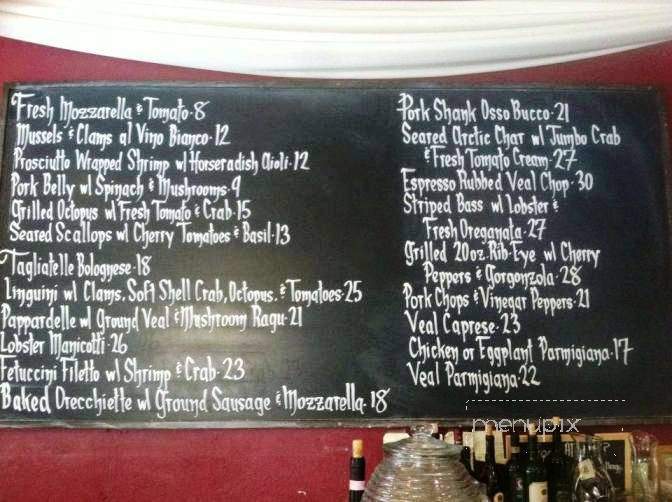 Fresh Mozzarella & Tomato · 8
Mussels & Clams al Vino Bianco · 12
Prosciutto Wrapped Shrimp w/ Horseradish Aioli · 12
Pork Belly w/ Spinach & Mushrooms · 9
Grilled Octopus w/ Fresh Tomato & Crab · 15
Seared Scallops w/ Cherry Tomatoes & Basil · 13
Tagliatelle Bolognese · 18
Linguini w/ Clams, Soft Shell Crab, Octopus, & Tomatoes · 25
Pappardelle w/ Ground Veal & Mushroom Ragu · 21
Lobster Manicotti · 26
Fetuccini Filetto w/ Shrimp & Crab · 23
Baked Orecchiette w/ Ground Sausage & Mozzarella · 18
Pork Shank Osso Bucco · 21
Seared Arctic Char w/ Jumbo Crab
& Fresh Tomato Cream · 27
Espresso Rubbed Veal Chop · 30
Striped Bass w/ Lobster &
Fresh Oreganata · 27
Grilled 20oz. Rib-Eye w/ Cherry
Peppers & Gorgonzola · 28
Pork Chops & Vinegar Peppers · 21
Veal Caprese · 23
Chicken or Eggplant Parmigiana · 17
Veal Parmigiana · 22
menupix